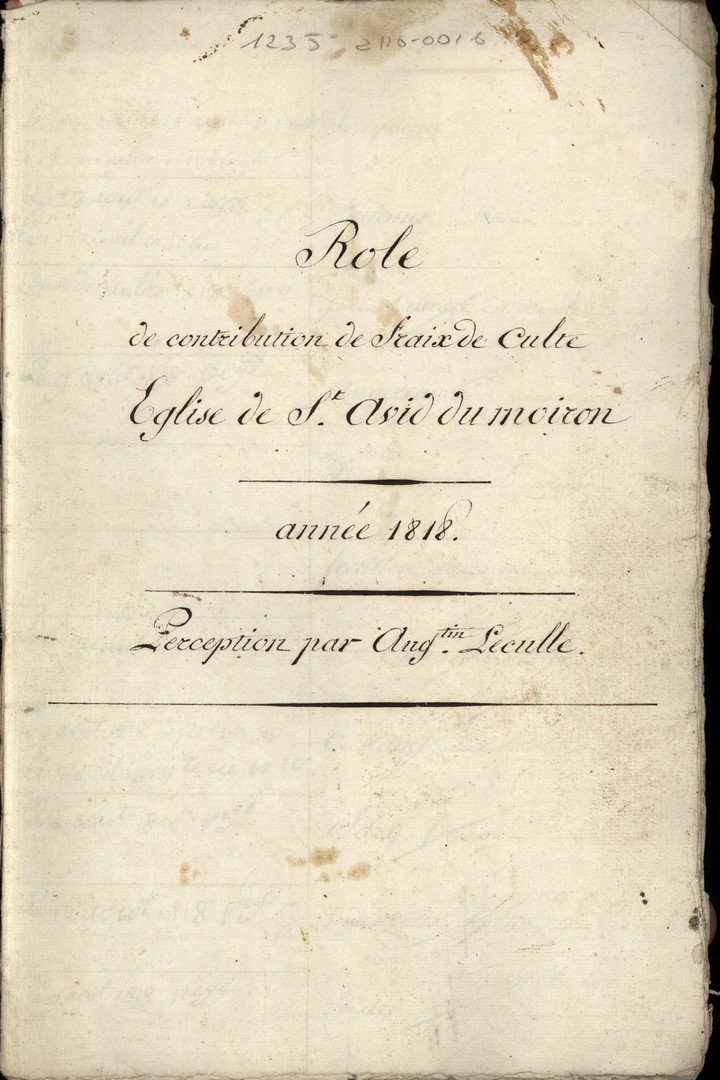 1235 2110-0016
Role
de contribution de Fraix de Culte
Eglise de St. Avid du moiron
année 1818.
Perception par Augtin. Leculle.